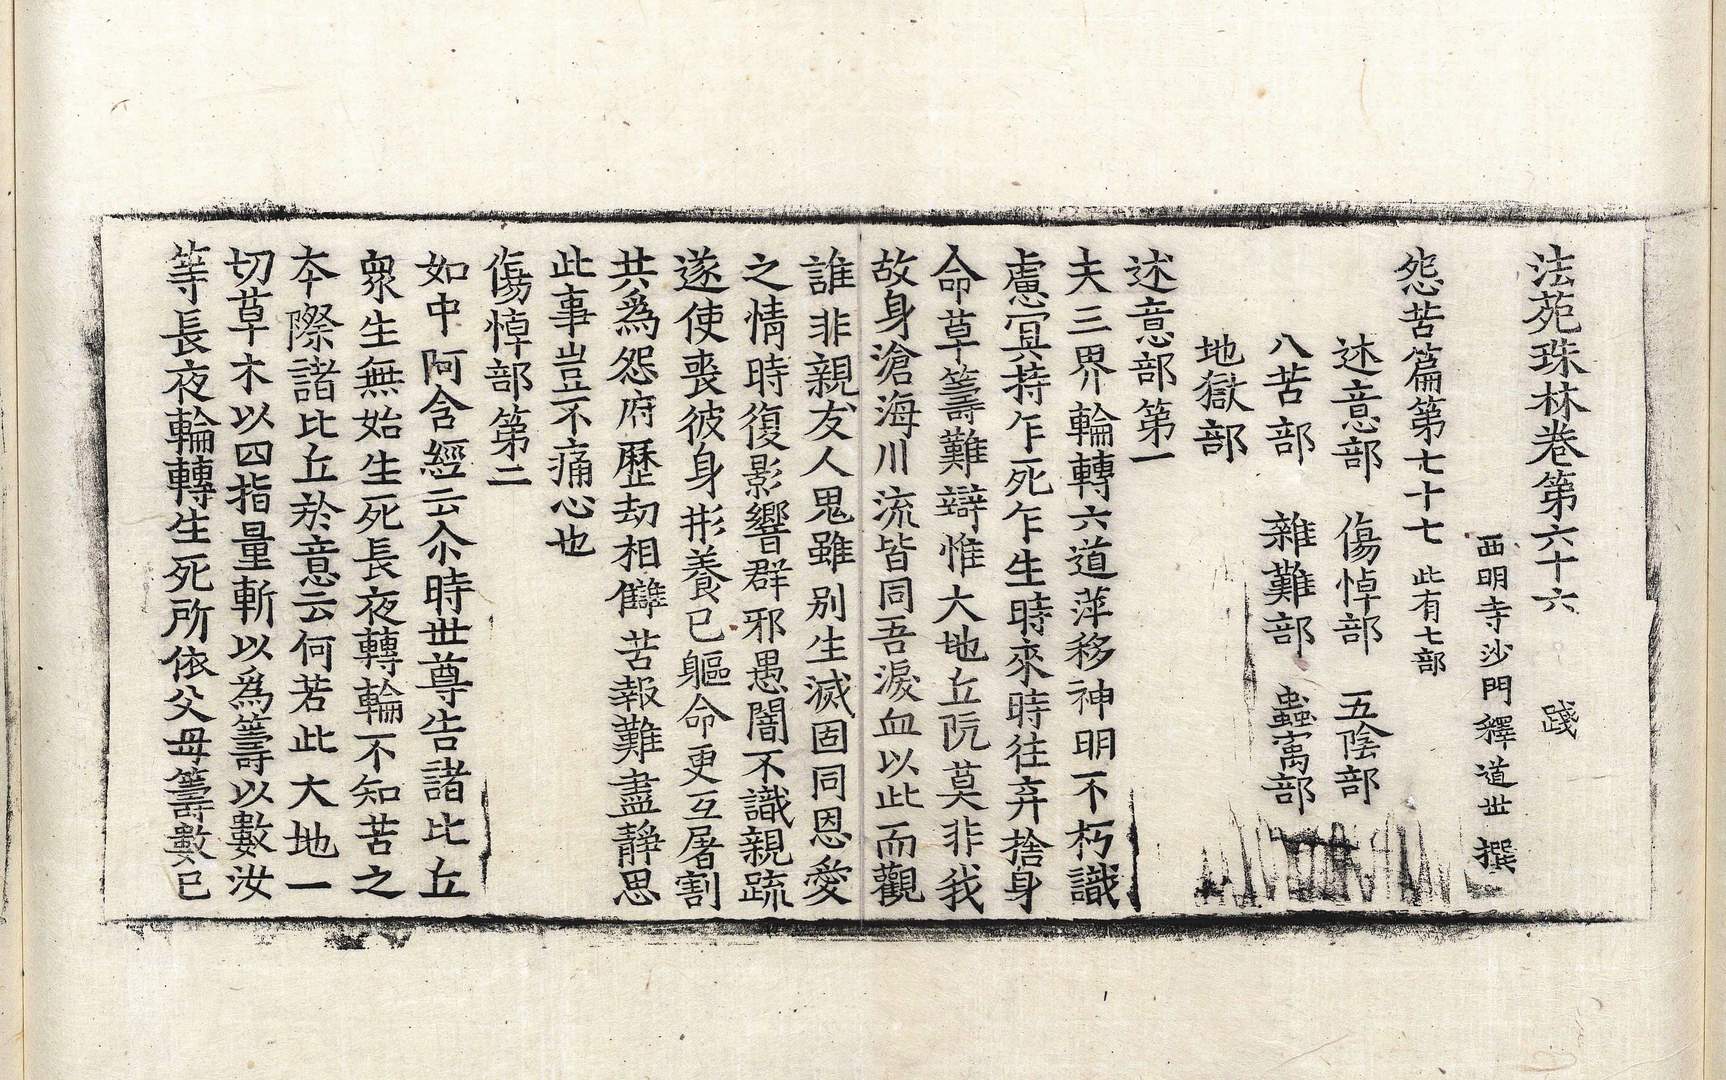 法苑珠林卷第六十六 踐
西明寺沙門釋道世 撰
怨苦篇第七十七 此有七部
述意部 傷悼部 五陰部
八苦部 雜難部 蟲寓部
地獄部
述意部第一
夫三界輪轉六道萍移神明不朽識
慮冥持乍死乍生時來時往弃捨身
命草籌難辯惟大地丘阬莫非我
故身滄海川流皆同吾淚血以此而觀
誰非親友人鬼雖別生滅固同恩愛
之情時復影響群邪愚闇不識親疏
遂使喪彼身形養已軀命更互屠割
共爲怨府歷劫相讎苦報難盡靜思
此事豈不痛心也
傷悼部第二
如中阿含經云尒時世尊告諸比丘
衆生無始生死長夜轉輪不知苦之
夲際諸比丘於意云何若此大地一
切草木以四指量斬以爲籌以數汝
等長夜輪轉生死所依父母籌數已